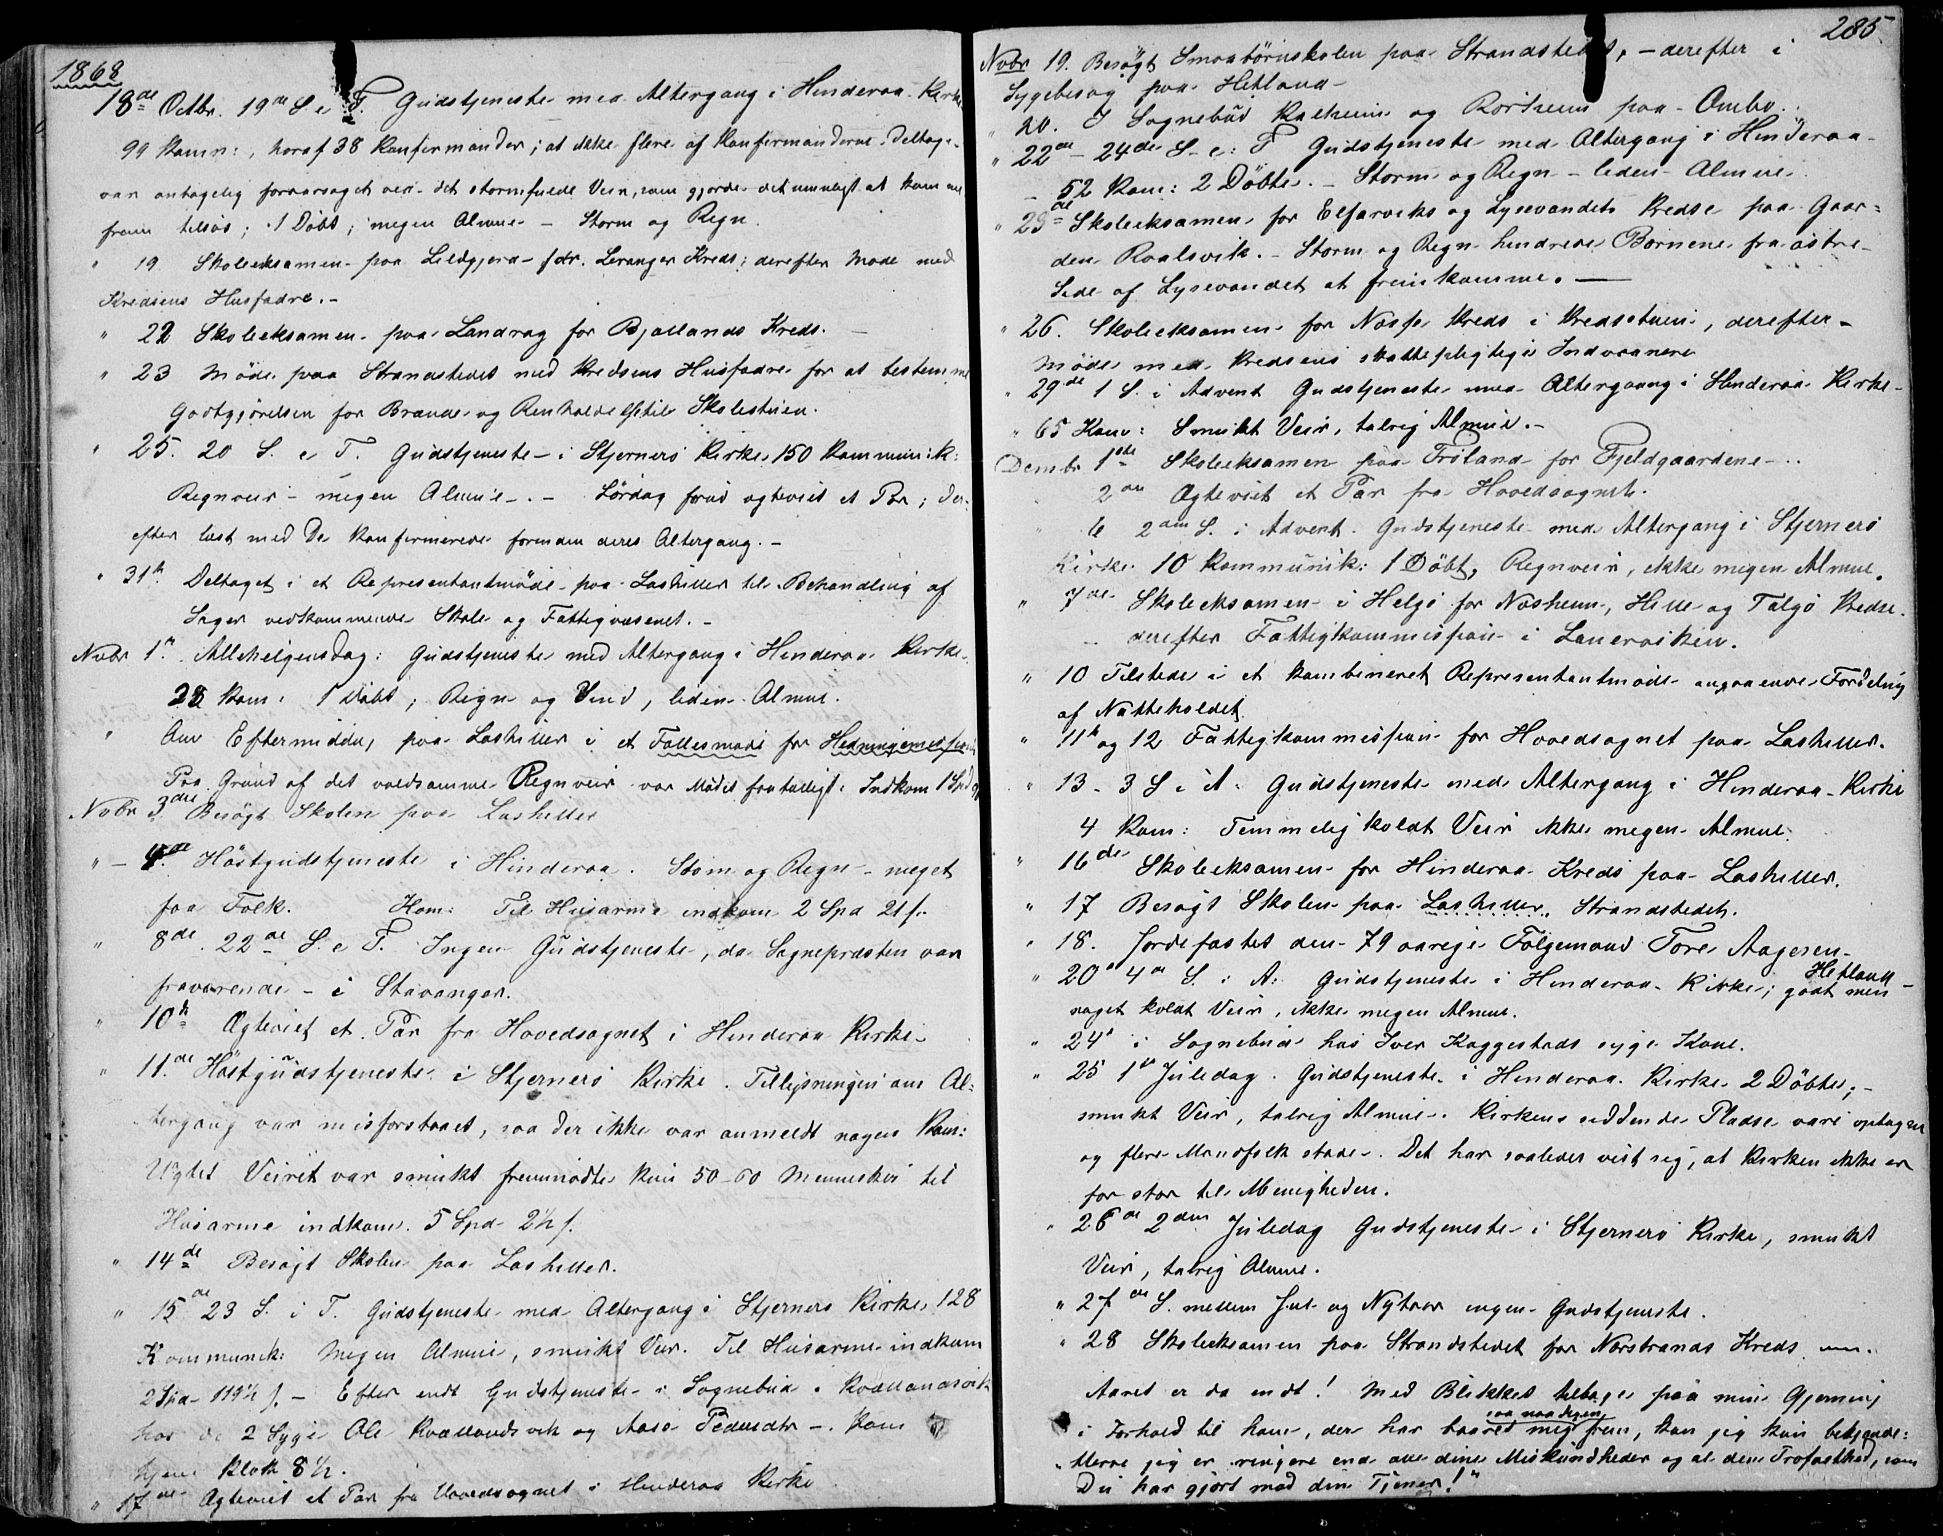 1868
18de Octbr. 19de S. e. T. Gudstjeneste med Altergang i Hinderaa Kirke
99 Kamn:, horaf 38 Konfirmander; at ikke flere af Konfirmanderne deltoge
var antagelig foraarsaget ved det stormfulde Veir, som gjorde det umuligt at komme
frem tilsøs; 1 Døbt; megen Almue – Storm og Regn.
" 19 Skoleeksamen paa Leldgjera for Leranger Kreds; derefter Møde med
Kredsens Husfædre. –
" 22 Skoleeksamen paa Landrag for Bjallands Kreds. –
" 23 Møde paa Strandstedet med Kredsens Husfædre for at bestemme
Godtgjørelsen for Brænde og Renholdelse til Skolestuen.
" 25. 20 S. e T. Gudstjeneste i Stjernerø Kirke, 150 Kommunik:
Regnveir – megen Almue –. – Lørdag forud ægteviet et Par; der-
efter læst med De Konfirmerede forinden deres Altergang. –
" 31te Deltaget i et Representantmøde paa Lashiller til Behandling af
Sager vedkommende Skole og Fattigvæsenet. –
Nvbr 1te. Allehelgensdag: Gudstjeneste med Altergang i Hinderaa Kirke.
28 Kom: 1 Døbt; Regn og Vind, liden Almue.
" Om Eftermidda, paa Lashiller i et Fællesmøde for Hedningemissionen
Paa Grund af det voldsomme Regnveir var Mødet faatalligt. Indkom 1 Spd
Nvbr 3die Besøgt Skolen paa Lashiller
" – 4de Høstgudstjeneste i Hinderaa. Storm og Regn – meget
faa Folk. Kom: Til Husarme indkom 2 Spd 21 s.
" 8de. 22de S. e T. Ingen Gudstjeneste, da Sognepræsten var
fraværende – i Stavanger.
" 10de Ægteviet et Par fra Hovedsognet i Hinderaa Kirke
" 11.de Høstgudstjeneste i Stjernerø Kirke. Tillysningen om Al:
tergang var misforstaaet, saa der ikke var anmeldt nogen Kom:
Ugtet Veiret var smukt fremmødte kun 50–60 Mennesker til
Husarme indkom. 5 Spd 2½ s.
" 14de Besøgt Skolen paa Lashiller.
" 15de 23 S. i T. Gudstjeneste med Altergang i Stjernerø Kirke, 128
Kommunik: Megen Almue, smukt Veir. Til Husarme indkom
2 Spd – 119½ s. – Efter endt Gudstjeneste i Sognebud i Kvællandsvik
hos de 2 Syge Ole Kvællandsvik og Aasa Pedersdtr –. Kom
hjem Klok 8½.
" 17de Ægteviet et Par fra Hovedsognet i Hinderaa Kirke
285
Nvbr 19. Besøgt Smaabørnskolen paa Strandstedet, – derefter i
Sygebesøg paa Hetland –
" 20. I Sognebud Kalheim og Rørheim paa Ombo.
" 22de – 24de S. e: T Gudstjeneste med Altergang i Hinderaa
– 52 Kom: 2 Døbte. – Storm og Regn – liden Almue.
" 23de Skoleeksamen for Elfarviks og Lysevandets Kredse paa Gaar:
den Roalsvik. – Storm og Regn hindrede Børnene fra østre
Side af Lysevandet at fremkomme. –
" 26. Skoleeksamen for Næsse Kreds i Kredsstuen, derefter –
Møde med Kredsens skattepligtige Indvaanere
" 29de 1 S. i Advent Gudstjeneste med Altergang i Hinderaa Kirke
" 65 Kom: Smukt Veir, talrig Almue. –
Decmbr 1ste Skoleeksamen paa Frøland for Fjeldgaardene – ..
2den Ægteviet et Par fra Hovedsognet.
" 6 2den S. i Advent. Gudstjeneste med Altergang i Stjernerø
Kirke 10 Kommunik: 1 Døbt, Regnveir, ikke megen Almue.
" 7de Skoleeksamen i Helgø for Næsheim, Hille og Talgø Kredse.
derefter Fattigkommission i Lanerviken.
" 10 Tilstede i et kombineret Representantmøde angaaende Fordeling
af Natteholdet.
" 11te og 12 Fattigkommission for Hovedsognet paa Lashiller.
" 13 – 3 S. i A: Gudstjeneste med Altergang i Hinderaa Kirke
4 Kom: Temmelig koldt Veir ikke megen Almue.
" 16de Skoleeksamen for Hinderaa Kreds paa Lashiller.
" 17 Besøgt Skolen paa Lashiller. Strandstedet.
" 18. Jordefæstet den 79 aarige Følgemand Tore Aagesen
Hetland –
" 20de 4de S. i A: Gudstjeneste i Hinderaa Kirke; godt men
noget koldt Veir, ikke megen Almue.
" 24de i Sognebud hos Iver Kaggestads syge Kone.
" 25 1ste Juledag. Gudstjeneste i Hinderaa Kirke 2 Døbte; –
smukt Veir, talrig Almue. Kirkens siddende Pladse vare optagne
og flere Mandfolk stode. Det har saaledes vist sig, at Kirken ikke er
for stor til Menigheden.
" 26de 2den Juledag Gudstjeneste i Stjernerø Kirke, smukt
Veir, talrig Almue.
" 27de S. mellem Jul og Nytaar ingen Gudstjeneste.
" 28 Skoleeksamen paa Strandstedet for Norstrands Kreds
Aaret er da endt! Med Blikket tilbage paa min Gjerning
saa naadigen
i Forhold til ham, der har baaret mig frem, kan jeg kun bekjende:
"Herre jeg er ringere end alle dine Miskundheder og al den Trofasthed, som
Du har gjort mod din Tjener!"